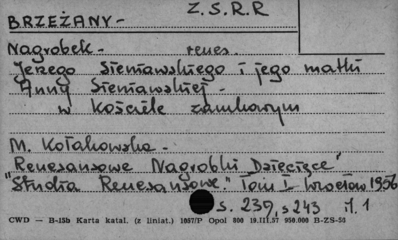 Z.S.R.R
BRZEŻANY-
Nagrobek - renes.
Jerzego Sieniawskiego i jego matki
Anny Sieniawskiej -
w kościele zamkowym
M. Kołakowska -
"Renesansowe Nagrobki Dziecięce"
"Studia Renesansowe." Tom I Wrocław 1956
s. 239, s 243 il. 1
CWD — B-15b Karta katal. (z liniat.) 1057/P Opol 800 19.III.57 950.000 B-ZS-55